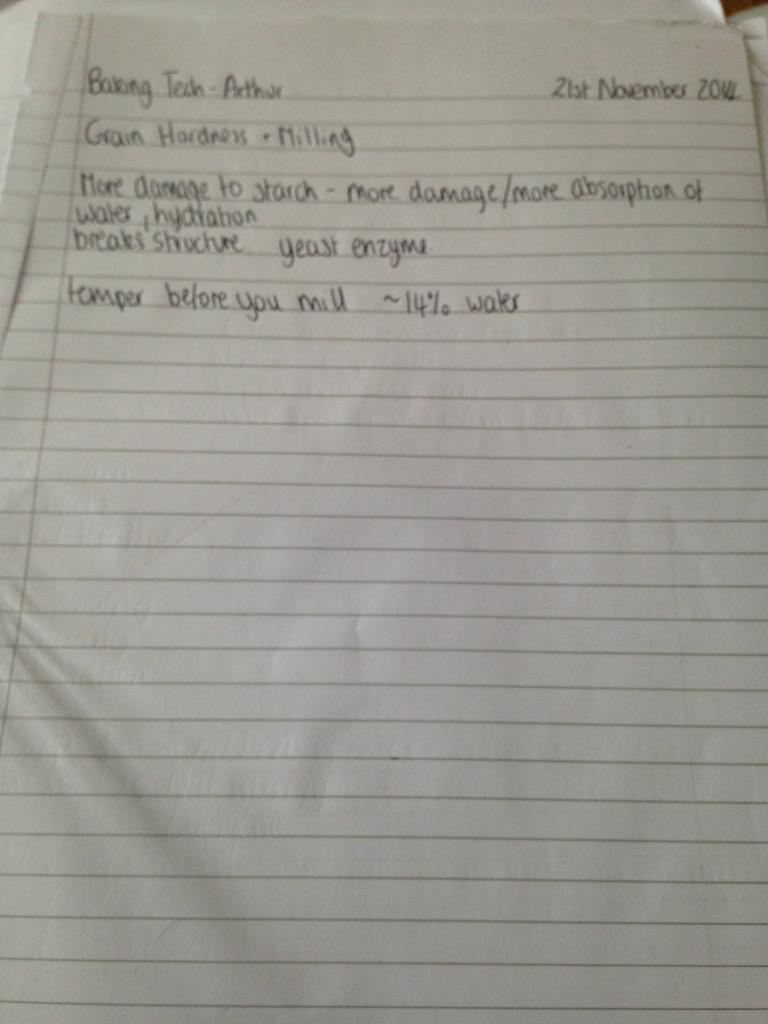 Baking Tech - Arthur 21st November 2014
Grain Hardness + Milling
More damage to starch - more damage/more absorption of
water, hydration
breaks structure yeast enzyme
temper before you mill ~14% water